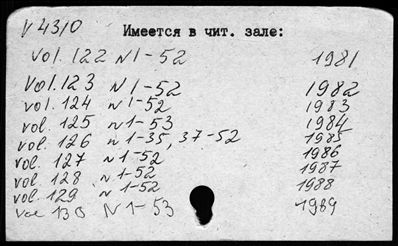 V 4310
Имеется в чит. зале:
vol. 122 N 1-52 1981
Vol. 123 N 1-52 1982
vol. 124 n 1-52 1983
vol. 125 n 1-53 1984
vol. 126 n 1-35, 37-52 1985
vol. 127 n 1-52 1986
vol. 128 n 1-52 1987
vol. 129 n 1-52 1988
vol 130 N 1-53 1989